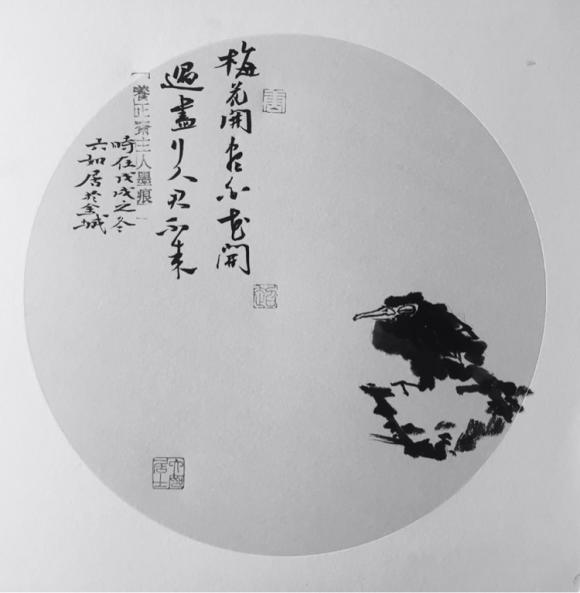 梅花開尽百花開
過盡行人君不來
「養正齋主人墨痕」
時在戊戌之冬
六如居於金城